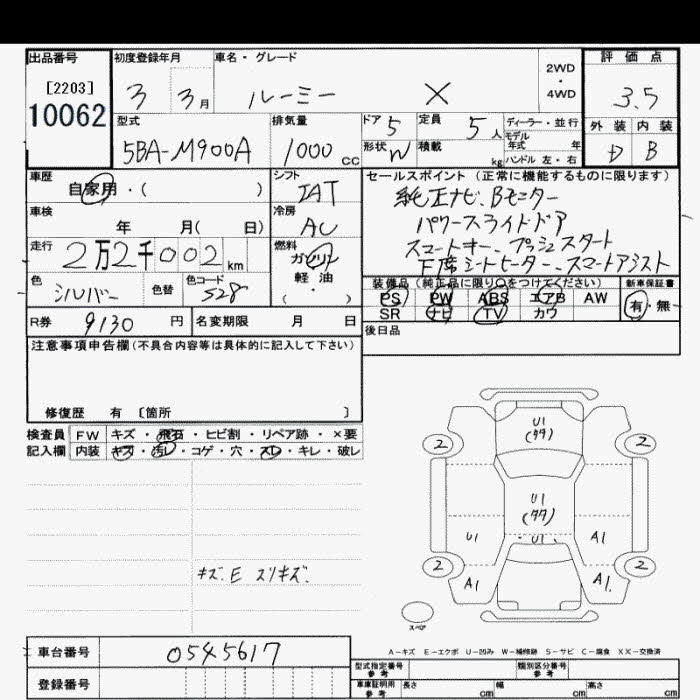 出品番号 初度登録年月 車名・グレード 2WD・4WD 評価点
[2203]
10062 3 3月 ルーミー X 3.5
型式 排気量 ドア 5 定員 5人 ディーラー・並行 外装 内装
5BA-M900A 1000cc 形状 W 積載 kg モデル年式 年 ハンドル 左・右 D B
車歴 シフト セールスポイント (正常に機能するものに限ります)
自家用・( ) IAT 純正ナビ、Bモニター
車検 冷房 パワースライドドア
年 月( 日) AC スマートキー、プッシュスタート
走行 燃料 F席シートヒーター、スマートアシスト
2万2千002km ガソリン
軽・油
・( )
色 色替 色コード 装備品(純正品に限り〇をつけてください) 新車保証書
シルバー S28 PS PW ABS エアB AW 有・無
R券 9130円 名変期限 月 日 SR ナビ TV カワ
後日品
注意事項申告欄(不具合内容等は具体的に記入して下さい)
修復歴 有 〔箇所 〕
検査員 FW キズ・飛石・ヒビ割・リペア跡・×要
記入欄 内装 キズ・汚レ・コゲ・穴・スレ・キレ・破レ
U1
(タタ)
2 2
U1
(タタ)
U1 U1 A1
2 2
A1 A1.
キズ.E スリキズ.
スペア
A－キズ E－エクボ U－凹み W－補修跡 S－サビ C－腐食 XX－交換済
車台番号 0545617
型式指定番号 参考 類別区分番号 参考
登録番号 車庫証明用 参考 長さ cm 幅 cm 高さ cm